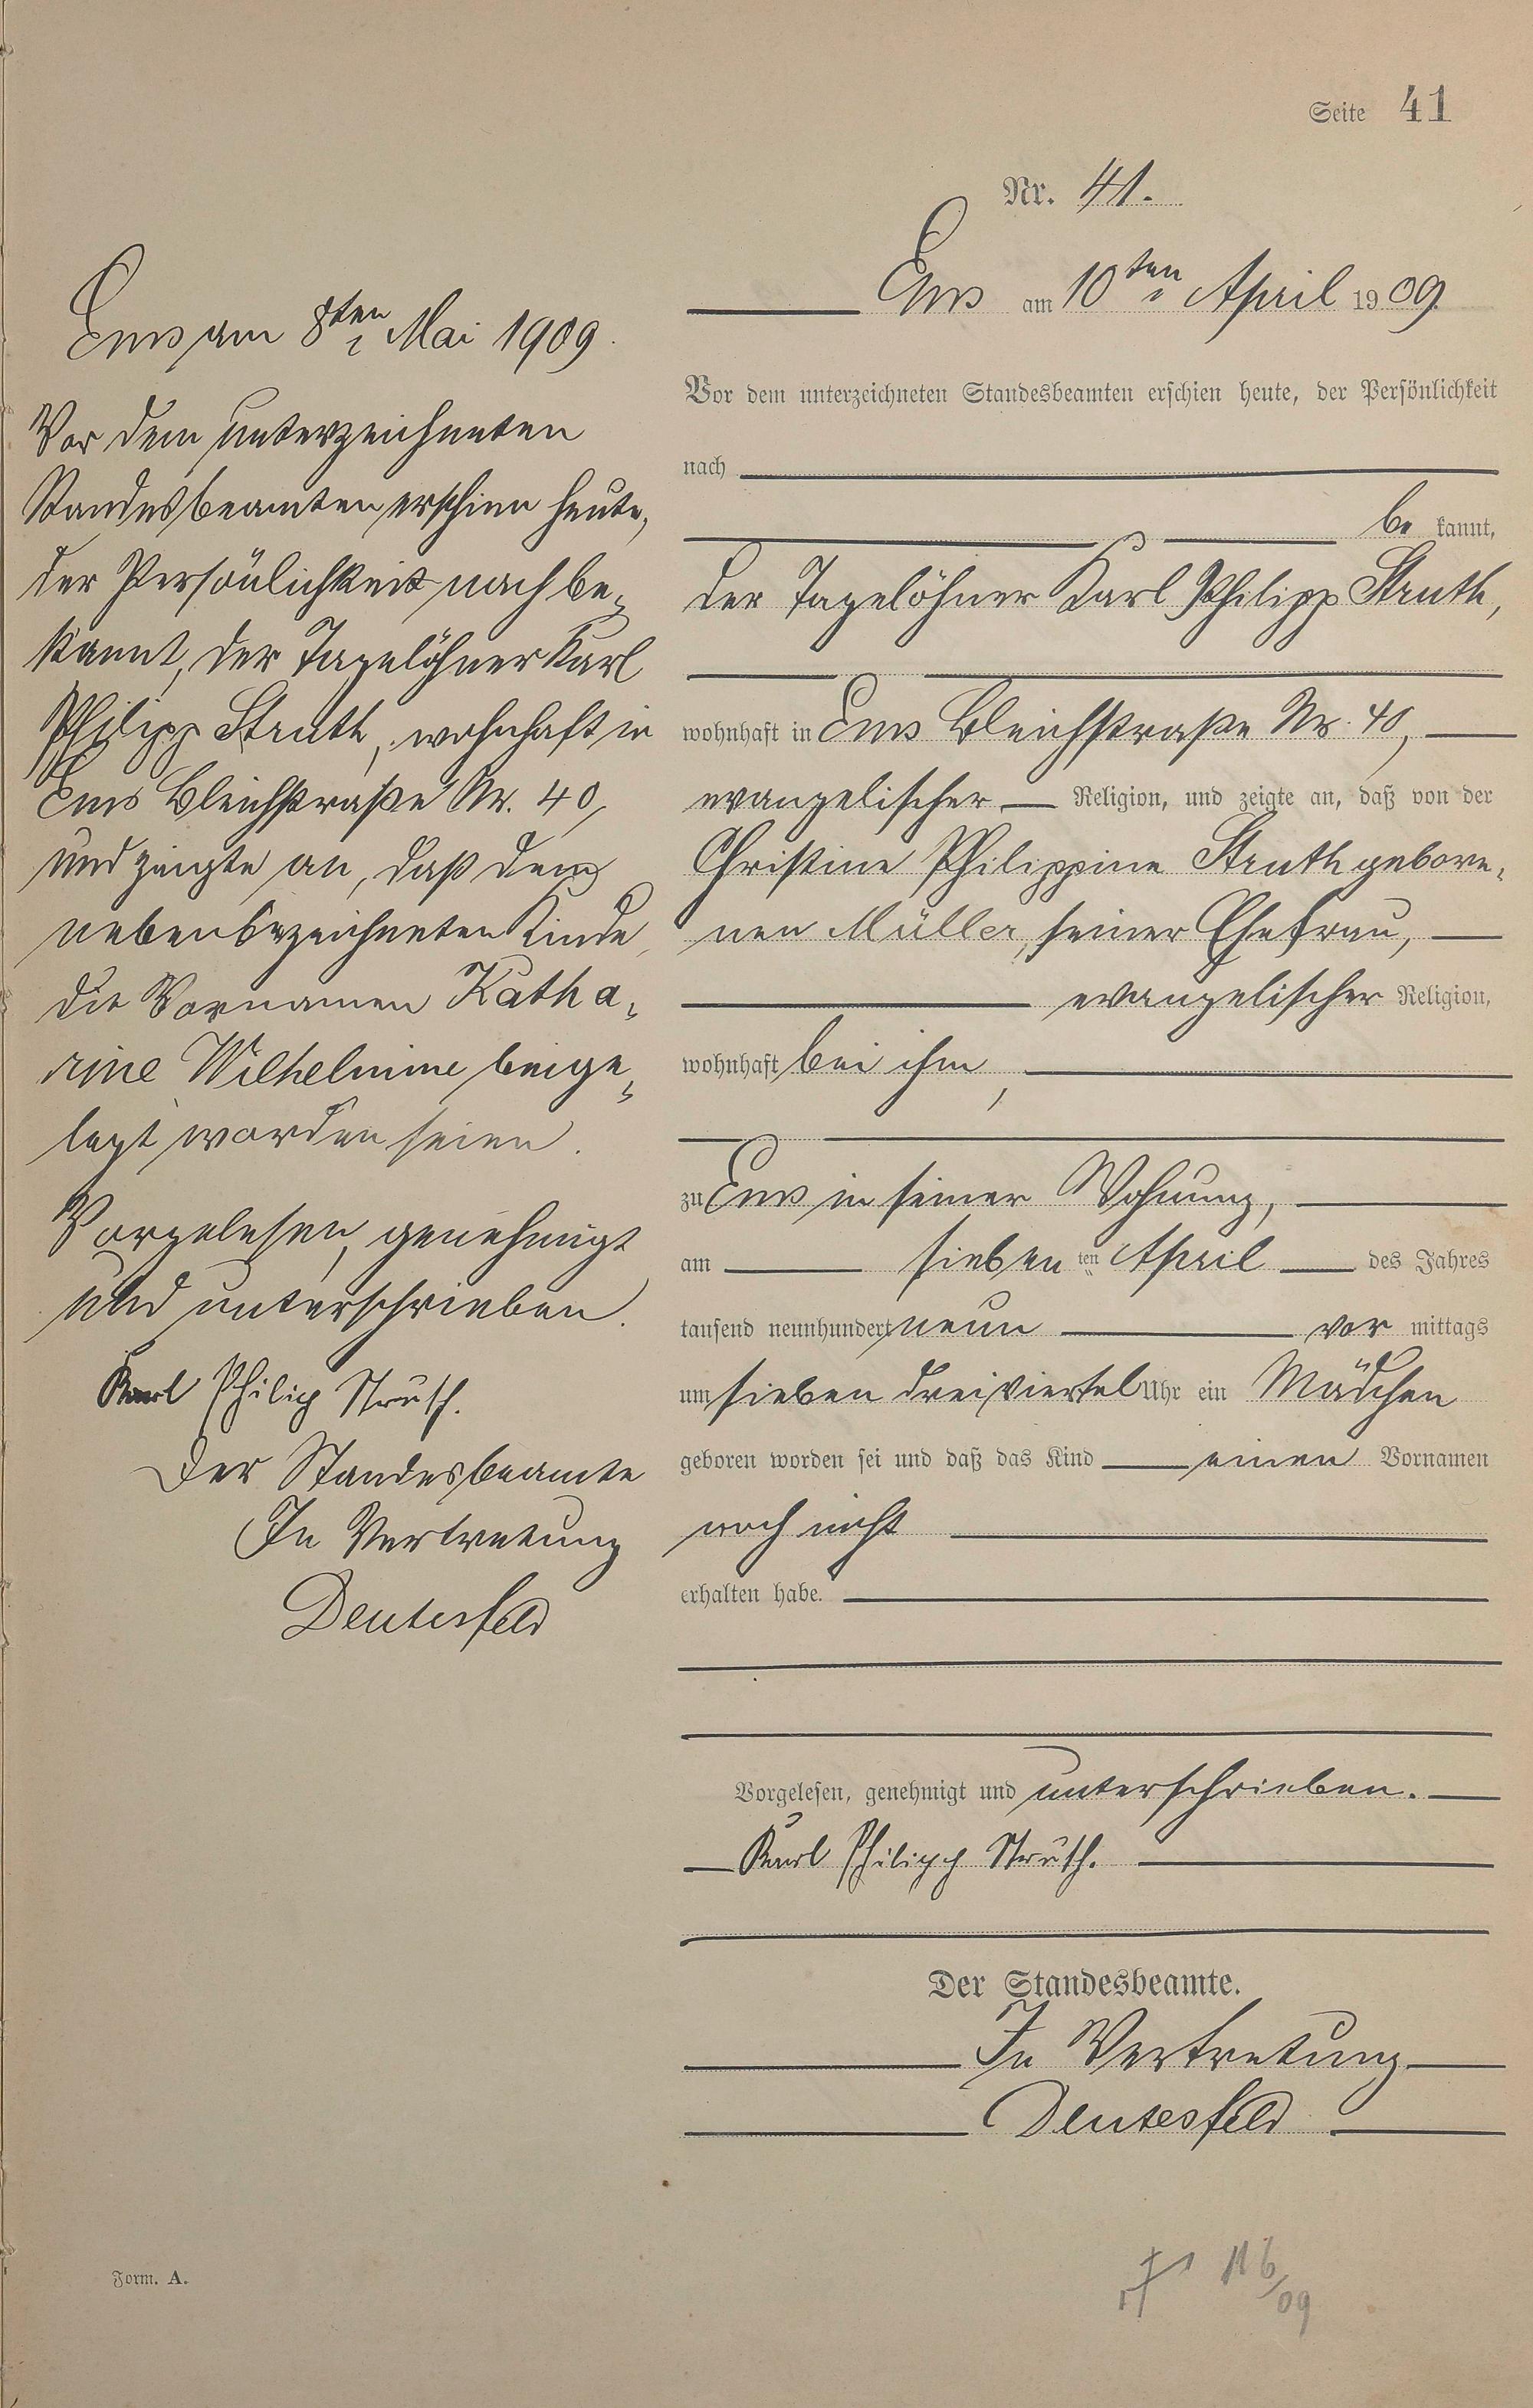 Seite 41
Nr. 41.
Ems am 10ten April 1909.
Vor dem unterzeichneten Standesbeamten erschien heute, der Persönlichkeit
nach
be kannt,
der Tagelöhner Karl Philipp Struth,
wohnhaft in Ems Bleichstraße Nr. 40,
evangelischer Religion, und zeigte an, daß von der
Christine Philippine Struth gebore-
nen Müller, seiner Ehefrau,
evangelischer Religion,
wohnhaft bei ihm,
zu Ems in seiner Wohnung,
am sieben ten April des Jahres
tausend neunhundert neun vor mittags
um sieben dreiviertel Uhr ein Mädchen
geboren worden sei und daß das Kind einen Vornamen
noch nicht
erhalten habe.
Vorgelesen, genehmigt und unterschrieben.
Karl Philipp Struth.
Der Standesbeamte.
In Vertretung
Deutesfeld
Ems am 8ten Mai 1909.
Vor dem unterzeichneten
Standesbeamten erschien heute,
der Persönlichkeit nach be-
kannt, der Tagelöhner Karl
Philipp Struth, wohnhaft in
Ems Bleichstraße Nr. 40,
und zeigte an, daß dem
nebenbezeichneten Kinde
die Vornamen Katha-
rine Wilhelmine beige-
legt worden seien.
Vorgelesen, genehmigt
und unterschrieben.
Karl Philipp Struth.
Der Standesbeamte
In Vertretung
Deutesfeld
Form. A.